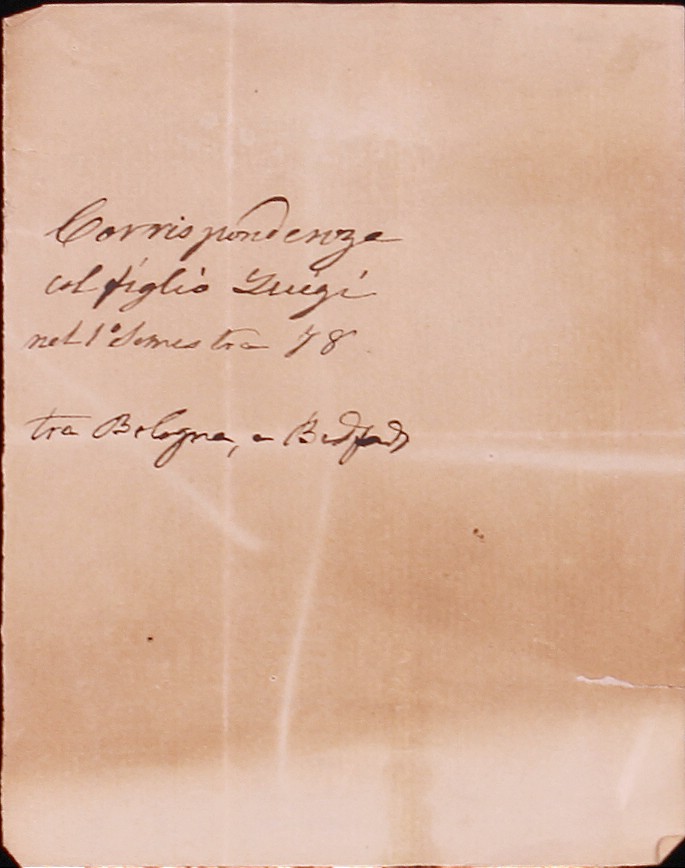 Corrispondenza
col figlio Luigi
nel 1° Semestre 78
tra Bologna, e Bedford